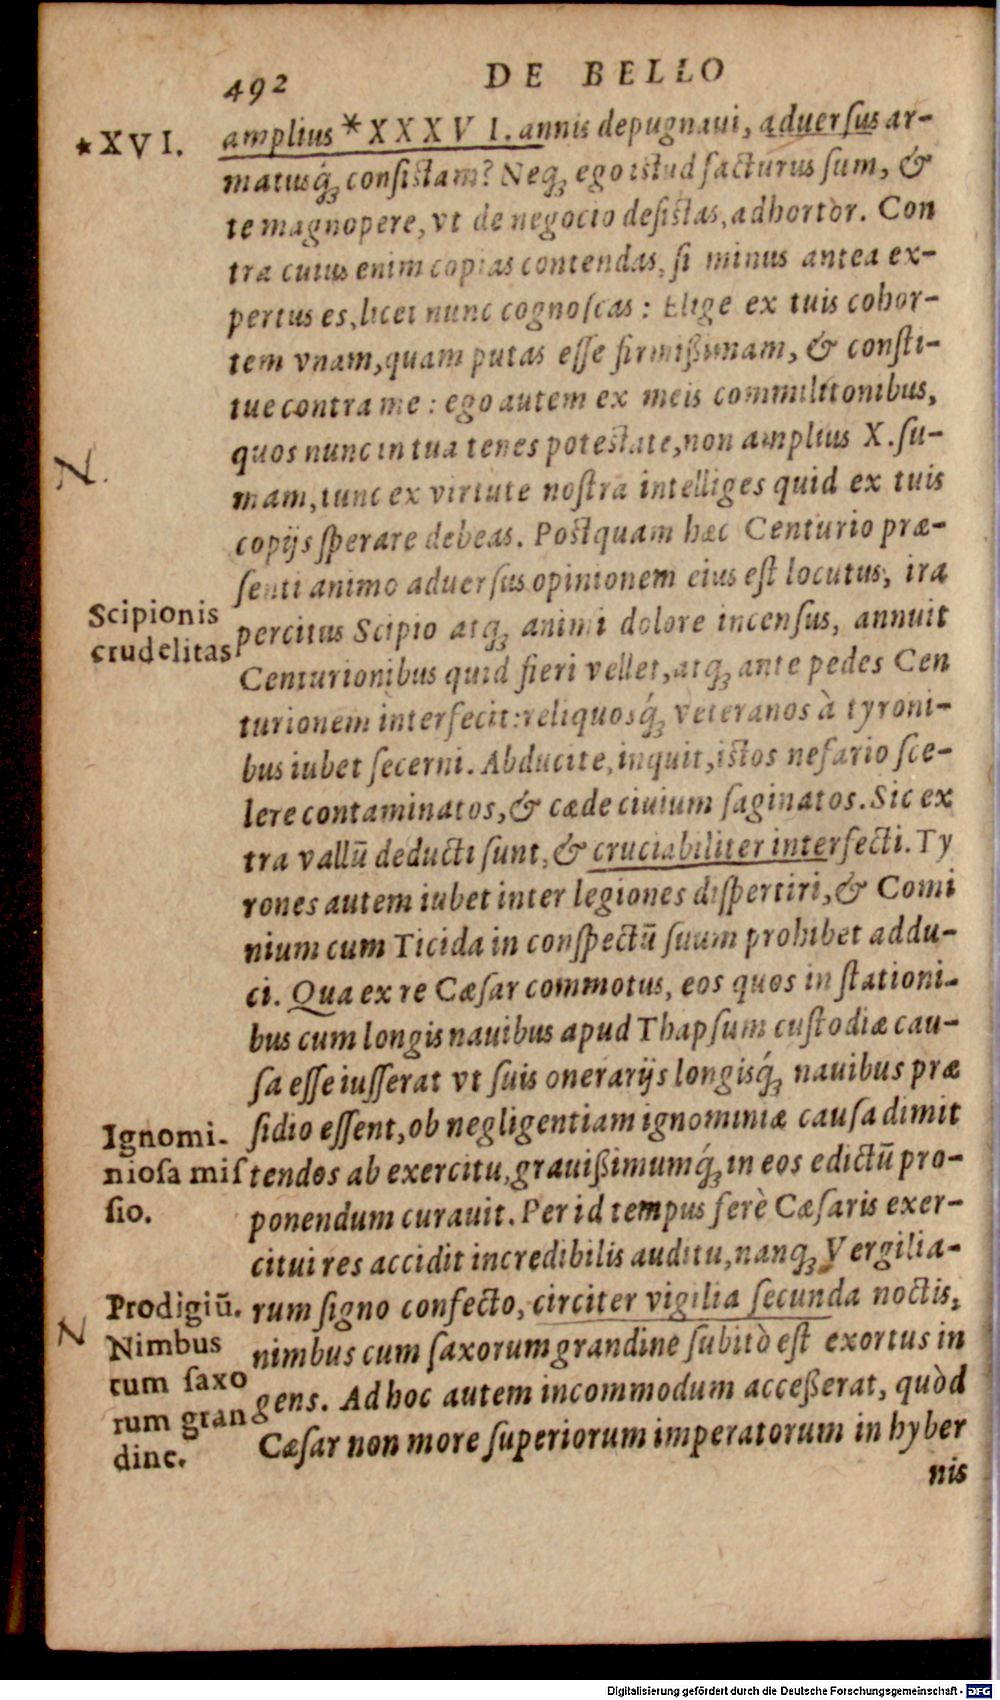 492 DE BELLO
*XVI.
amplius *XXXVI. annis depugnaui, aduersus ar-
matusq́ꝫ consistam? Neqꝫ ego istud facturus sum, &
te magnopere, vt de negocio desistas, adhortor. Con
tra cuius enim copias contendas, si minus antea ex-
pertus es, licet nunc cognoscas: Elige ex tuis cohor-
tem vnam, quam putas esse firmißimam, & consti-
tue contra me: ego autem ex meis commilitonibus,
quos nunc in tua tenes potestate, non amplius X. su-
N.
mam, tunc ex virtute nostra intelliges quid ex tuis
copijs sperare debeas. Postquam hæc Centurio præ-
senti animo aduersus opinionem eius est locutus, ira
Scipionis
crudelitas
percitus Scipio atqꝫ animi dolore incensus, annuit
Centurionibus quid fieri vellet, atqꝫ ante pedes Cen
turionem interfecit: reliquosq́ꝫ veteranos à tyroni-
bus iubet secerni. Abducite, inquit, istos nefario sce-
lere contaminatos, & cæde ciuium saginatos. Sic ex
tra vallū deducti sunt, & cruciabiliter interfecti. Ty
rones autem iubet inter legiones dispertiri, & Comi
nium cum Ticida in conspectū suum prohibet addu-
ci. Qua ex re Cæsar commotus, eos quos in stationi-
bus cum longis nauibus apud Thapsum custodiæ cau-
sa esse iusserat vt suis onerarijs longisq́ꝫ nauibus præ
sidio essent, ob negligentiam ignominiæ causa dimit
Ignomi-
niosa mis
sio.
tendos ab exercitu, grauißimumq́ꝫ in eos edictū pro-
ponendum curauit. Per id tempus ferè Cæsaris exer-
citui res accidit incredibilis auditu, nanqꝫ Vergilia-
rum signo confecto, circiter vigilia secunda noctis,
Prodigiū.
N
Nimbus
cum saxo
rum gran
dine.
nimbus cum saxorum grandine subitò est exortus in
gens. Ad hoc autem incommodum acceßerat, quòd
Cæsar non more superiorum imperatorum in hyber
nis
Digitalisierung gefördert durch die Deutsche Forschungsgemeinschaft - DFG